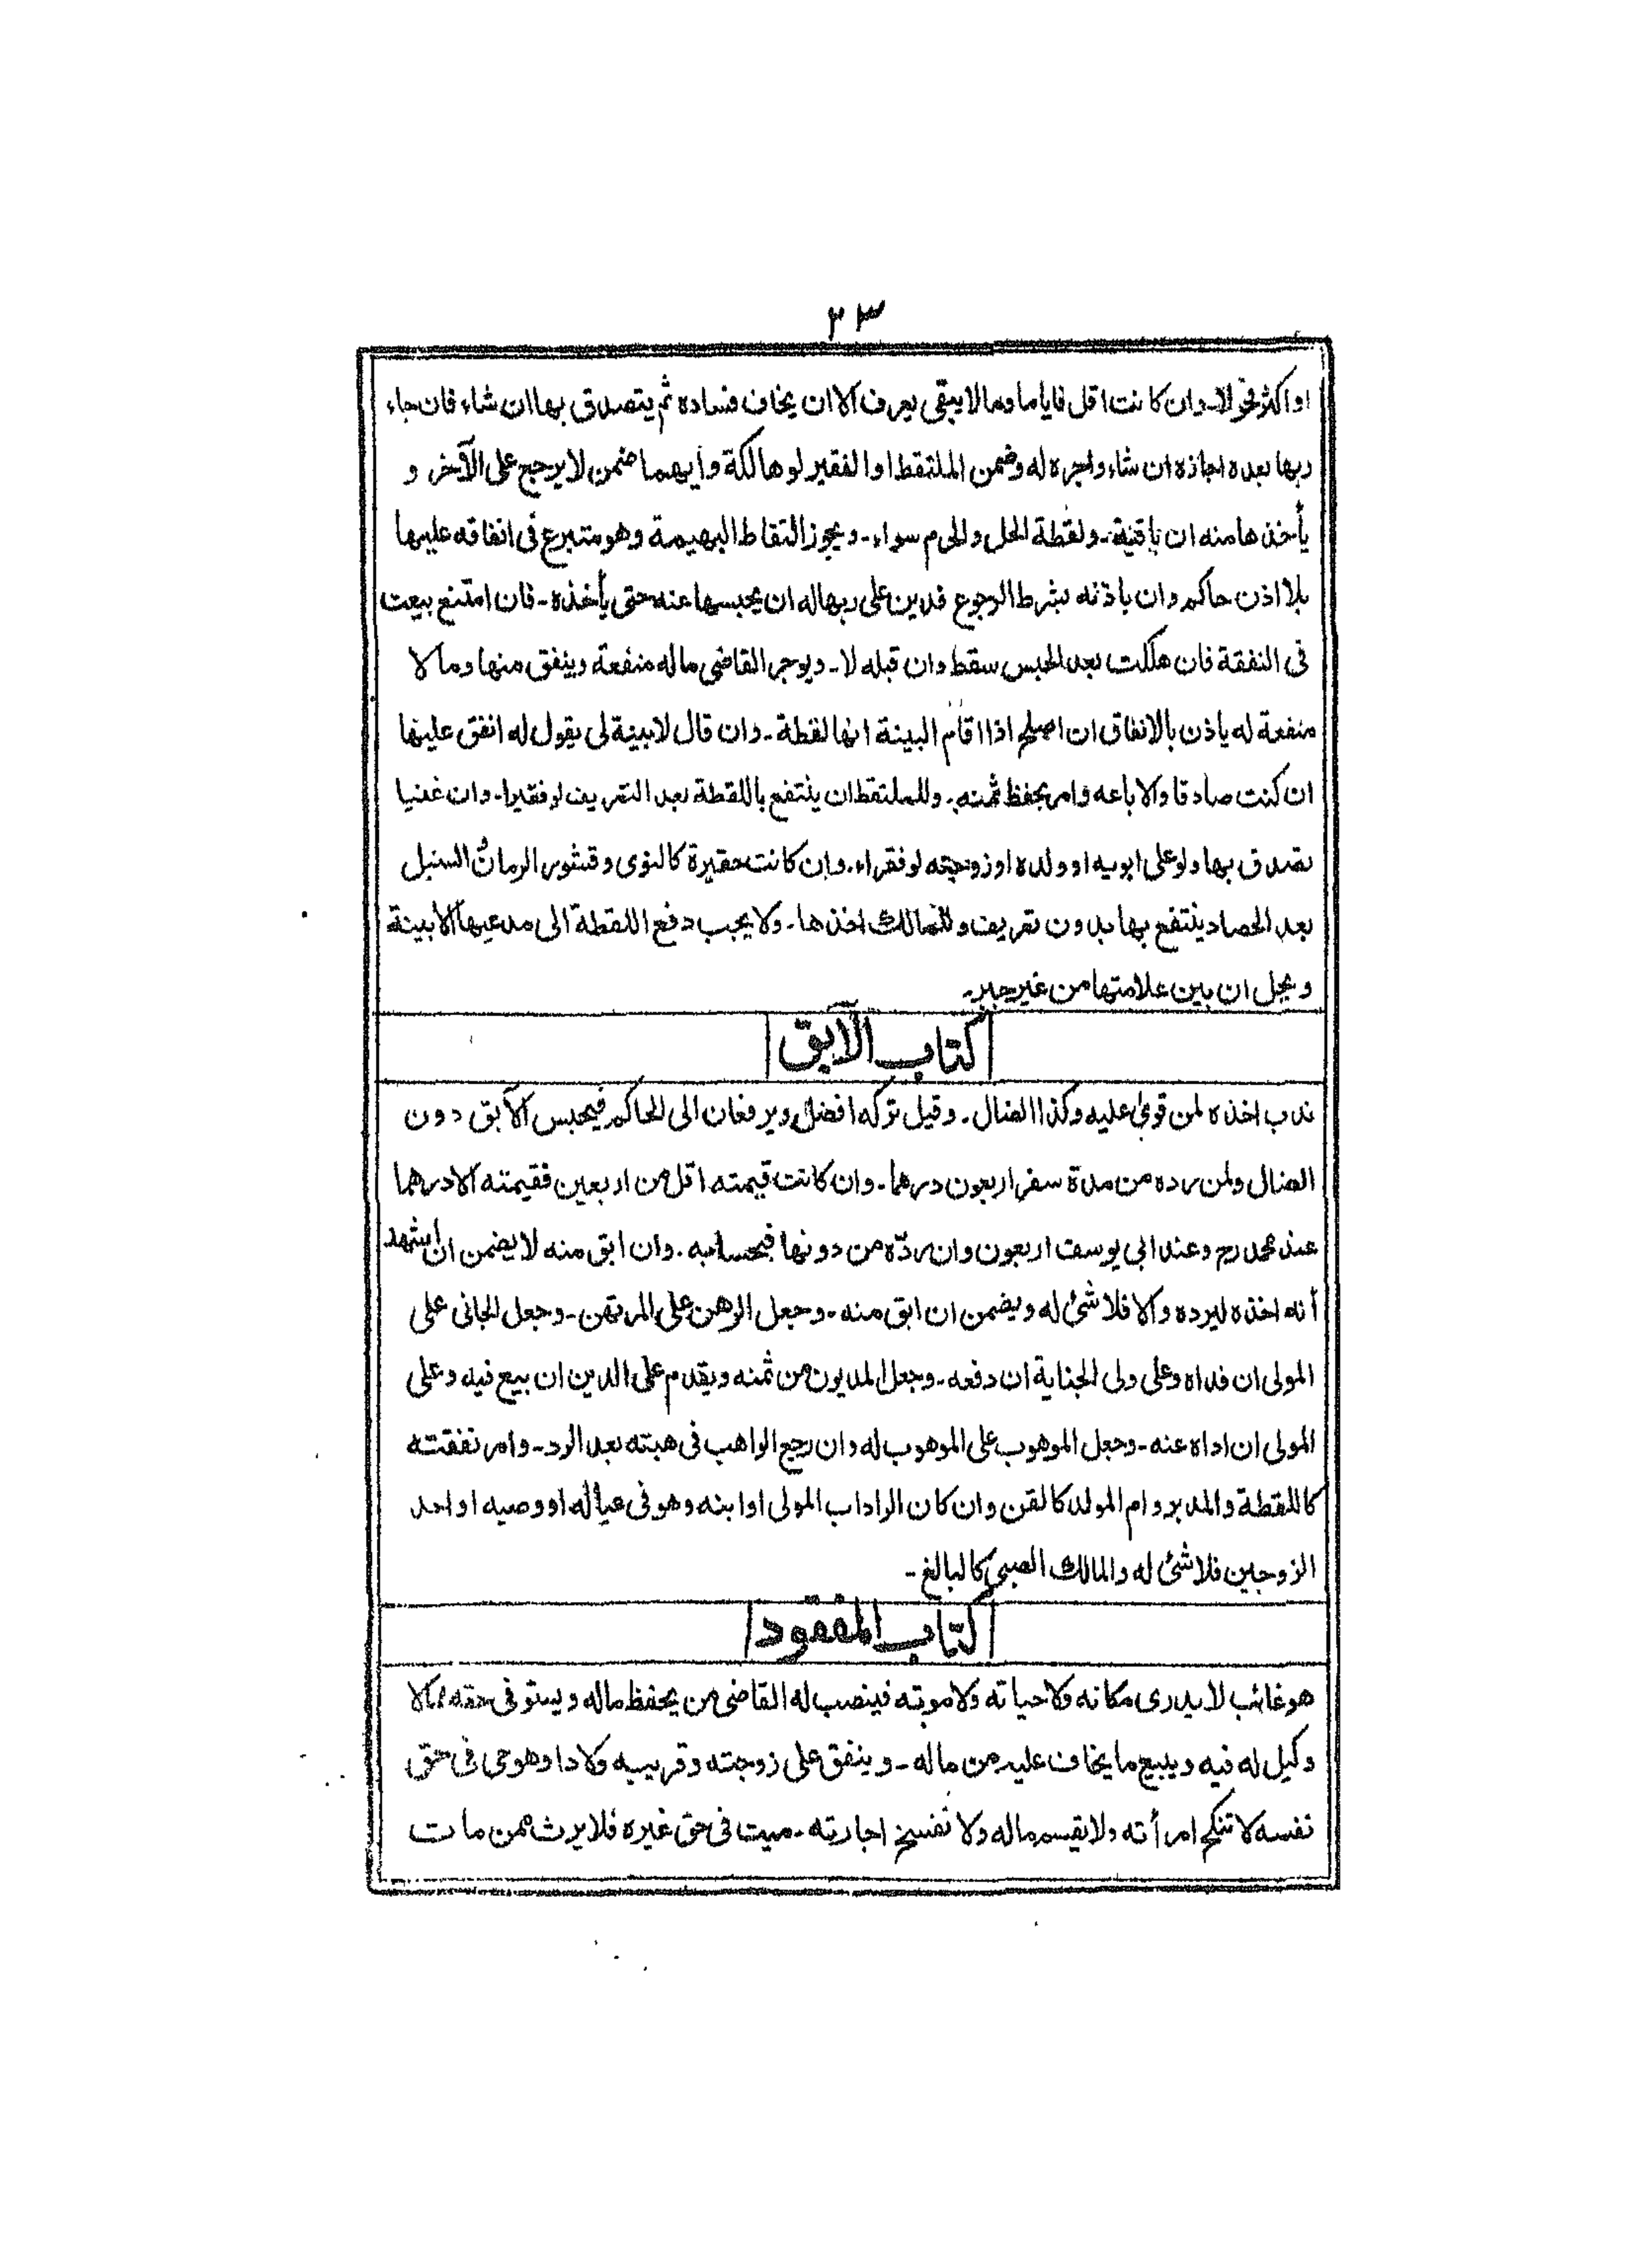 ٢٣
او اكثر فحولا۔ وان كانت اقل فاياما وما لا يبقى يعرف الا ان يخاف فساده ثم يتصدق بها ان شاء فان جاء
ربها بعده اجازه ان شاء واجره له وضمن الملتقط او الفقير لو هالكة وأيهما ضمن لا يرجع على الآخر و
يأخذها منه ان باقية۔ ولقطة الحل والحرم سواء۔ ويجوز التقاط البهيمة وهو متبرع فى انفاقه عليها
بلا اذن حاكم وان باذنه بشرط الرجوع فدين على ربها له ان يحبسها عنه حتى يأخذه۔ فان امتنع بيعت
فى النفقة فان هلكت بعد الحبس سقط وان قبله لا۔ ويوجر القاضى ما له منفعة وينفق منها وما لا
منفعة له ياذن بالانفاق ان اصلح اذا اقام البينة انها لقطة۔ وان قال لا بينة لى يقول له انفق عليها
ان كنت صادقا والا باعه وامر بحفظ ثمنه۔ وللملتقط ان ينتفع باللقطة بعد التعريف لو فقيرا۔ وان غنيا
تصدق بها ولو على ابويه او ولده او زوجته لو فقراء۔ وان كانت حقيرة كالنوى وقشور الرمان والسنبل
بعد الحصاد ينتفع بها بدون تعريف وللمالك اخذها۔ ولا يجب دفع اللقطة الى مدعيها الا ببينة
ويحل ان بين علامتها من غير جبر۔
كتاب الآبق
ندب اخذه لمن قوى عليه وكذا الضال۔ وقيل تركه افضل ويرفعان الى الحاكم فيحبس الآبق دون
الضال ولمن رده من مدة سفر اربعون درهما۔ وان كانت قيمته اقل من اربعين فقيمته الا درهما
عند محمد رح وعند ابى يوسف اربعون وان ردّه من دونها فبحسابه۔ وان ابق منه لا يضمن ان اشهد
أنه اخذه ليرده والا فلا شئ له ويضمن ان ابق منه۔ وجعل الرهن على المرتهن۔ وجعل الجانى على
المولى ان فداه وعلى ولى الجناية ان دفعه۔ وجعل المديون من ثمنه ويقدم على الدين ان بيع فيه وعلى
المولى ان اداه عنه۔ وجعل الموهوب على الموهوب له وان رجع الواهب فى هبته بعد الرد۔ وامر نفقته
كاللقطة والمدبر وام المولد كالقن وان كان الراد اب المولى او ابنه وهو فى عياله او وصيه او احد
الزوجين فلا شئ له والمالك الصبى كالبالغ۔
كتاب المفقود
هو غائب لا يدرى مكانه ولا حياته ولا موته فينصب له القاضى من يحفظ ماله ويستوفى حقه مما لا
وكيل له فيه ويبيع ما يخاف عليه من ماله۔ وينفق على زوجته وقريبه ولادا وهو حى فى حق
نفسه لا تنكح امرأته ولا يقسم ماله ولا تفسخ اجارته۔ ميت فى حق غيره فلا يرث ممن مات